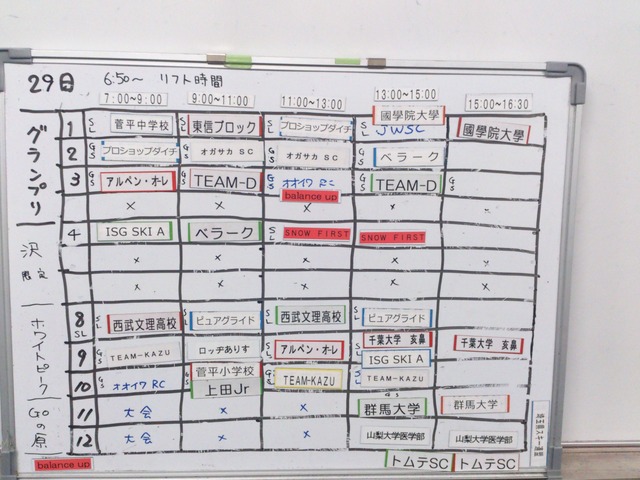 29日 6:50～ リフト時間
7:00～9:00 9:00～11:00 11:00～13:00 13:00～15:00 15:00～16:30
グランプリ
1 SL 菅平中学校 SL 東信ブロック SL プロショップダイチ SL 國學院大學 JWSC SL 國學院大學
2 GS プロショップダイチ GS オガサカ SC GS オガサカ SC GS ベラーク
3 GS アルペン・オレ GS TEAM-D GS オオイワ RC balance up GS TEAM-D GS
× × × × ×
沢 限定
4 ISG SKI A ベラーク SL SNOW FIRST SNOW FIRST
× × × ×
× × × ×
ホワイトピーク
8 SL SL 西武文理高校 SL ピュアグライド SL 西武文理高校 SL ピュアグライド
9 GS TEAM-KAZU ロッヂありす SL アルペン・オレ SL 千葉大学 亥鼻 ISG SKI A 千葉大学 亥鼻
10 GS オオイワ RC 菅平小学校 上田Jr GS TEAM-KAZU SL TEAM-KAZU
Goの原
11 大会 × × GS 群馬大学 群馬大学
12 大会 × × 山梨大学医学部 山梨大学医学部
balance up トムテSC トムテSC
埼玉県スキー連盟